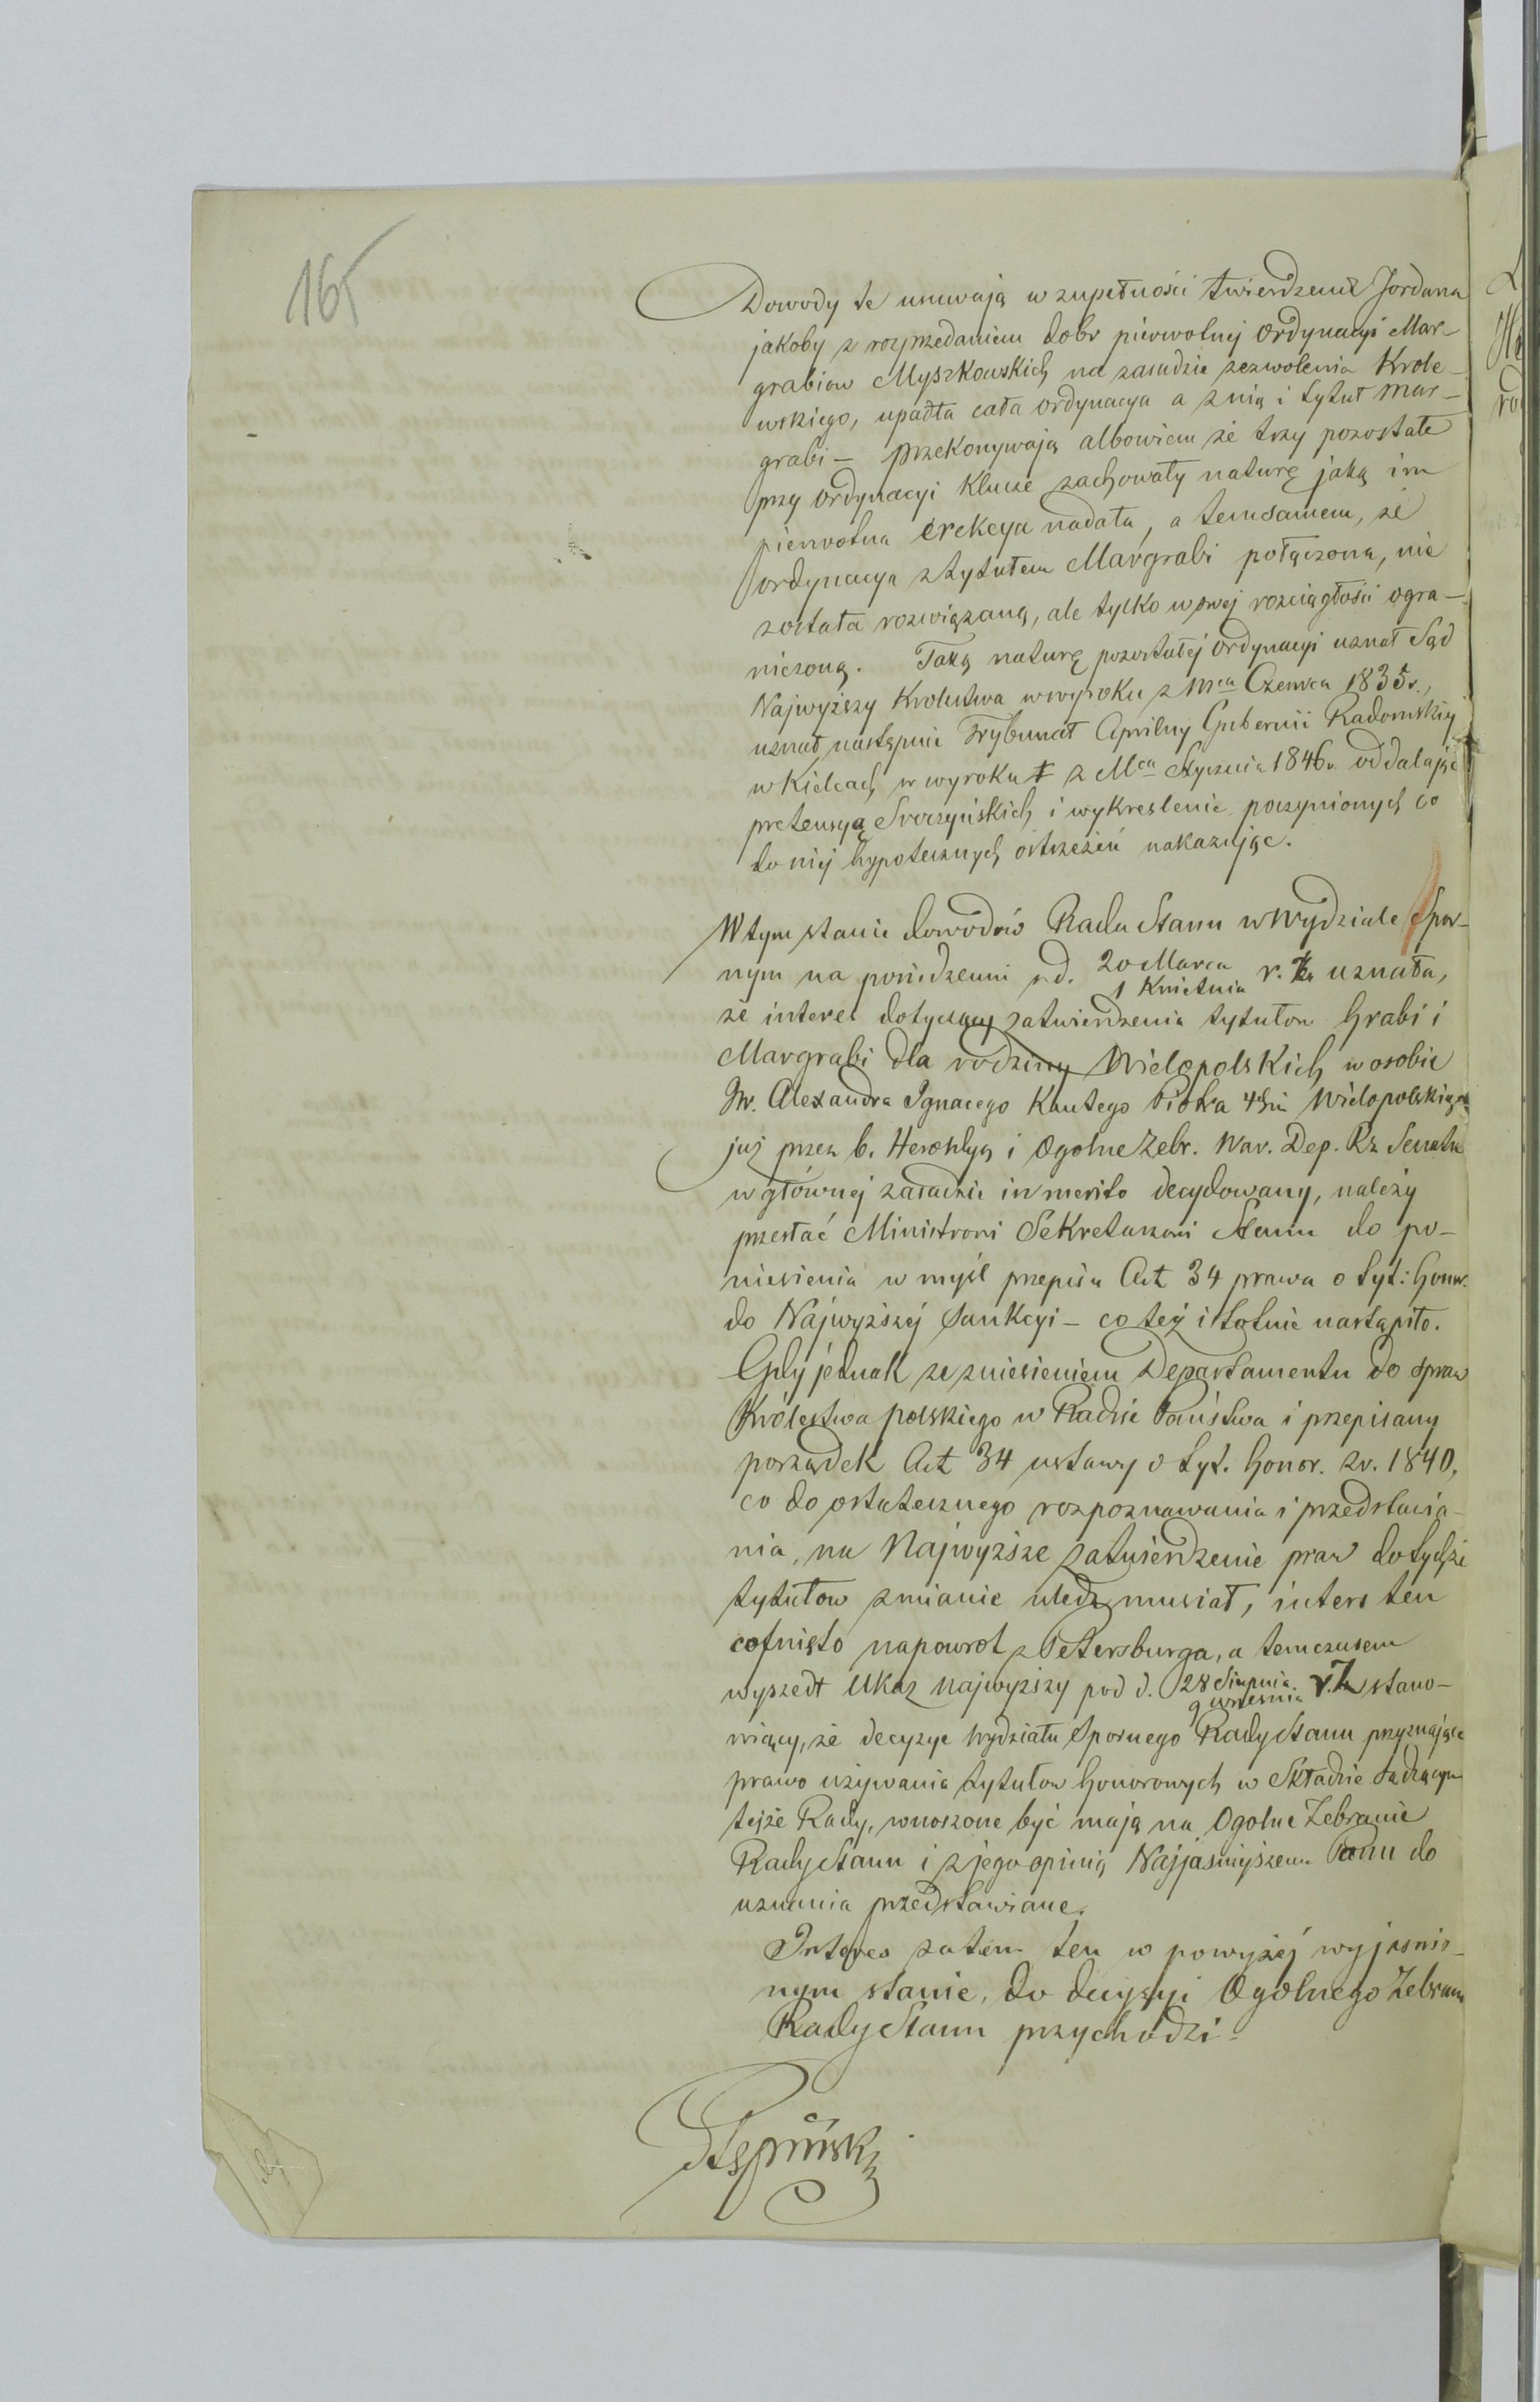 165
Dowody te usuwają w zupełności twierdzenie Jordana
jakoby z rozprzedaniem dobr pierwotnej ordynacyi Mar-
grabiow Myszkowskich na zasadzie zezwolenia Krole-
wskiego, upadła cała ordynacya a z nią i tytuł mar-
grabi – przekonywają albowiem że trzy pozostałe
przy ordynacyi klucze zachowały naturę jaką im
pierwotna erekcya nadała, a temsamem, że
ordynacya z tytułem Margrabi połączona, nie
została rozwiązaną, ale tylko w swej rozciągłości ogra-
niczoną. Taką naturę pozostałej ordynacyi uznał Sąd
Najwyższy Krolestwa w wyroku z Mca Czerwca 1835 r.,
uznał następnie Trybunał Cywilny Gubernii Radomskiej
w Kielcach w wyroku z Mca Stycznia 1846 r. oddalając
pretensyą i wykreslenie poczynionych co
do niej hypotecznych ostrzeżeń nakazując.
W tym stanie dowodów Rada Stanu w Wydziale Spor-
nym na posiedzeniu z d. 20 Marca
1 Kwietnia r. z. uznała,
że interes dotyczący zatwierdzenia tytułow Grabi i
Margrabi dla rodziny Wielopolskich w osobie
Jw. Alexandra Ignacego Kantego Piotra 4ch im Wielopolskiego
już przez b. Heroldyą i Ogolne Zebr. War. Dep. Rz. Senatu
w głównej zasadzie in merito decydowany, należy
przesłać Ministrowi Sekretarzowi Stanu do po-
niesienia w myśl przepisu Art 34 prawa o tyt: honor.
do Najwyższej Sankcyi – co też istotnie nastąpiło.
Gdy jednak ze zniesieniem Departamentu do spraw
Królestwa polskiego w Radzie Państwa i przepisany
porządek Art 34 ustawy o tyt. honor. z r. 1840,
co do ostatecznego rozpoznawania i przedstawia-
nia, na Najwyższe zatwierdzenie praw do tychże
tytułow zmianie uledz musiał, interes ten
cofnięto napowrot z Petersburga, a temczasem
wyszedł Ukaz najwyższy pod d. 28 Sierpnia
9 września r. z. stano-
wiący, że decyzye Wydziału Spornego Rady Stanu przyznające
prawo używania tytułow honorowych w Składzie Sądzącym
tejże Rady, wnoszone być mają na Ogolne Zebranie
Rady Stanu i z jego opinią Najjaśniejszemu Panu do
uznania przedstawiane.
Interes zatem ten w powyżej wyjaśnio-
nym stanie, do decyzyi Ogolnego Zebrania
Rady Stanu przychodzi.